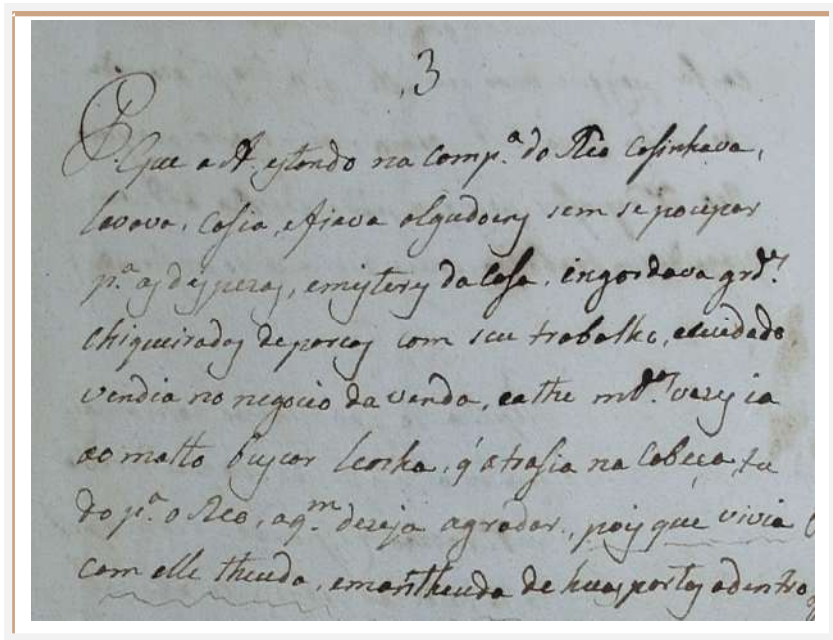 3
P. Que a A. estando na Comp.ª do Reo Cosinhava,
lavava, Cosia, efiava algudoens sem se poupar
p.ª as despezas, emisteres da Casa, ingordava grd.es
chiqueirados de porcos com seu trabalho, ecuidado
vendia no negocio da venda, eathe mt.as vezes ia
ao matto buscar lenha, q' atrasia na Cabeça, tu
do p.ª o Reo, aq.m deseja agradar, pois que vivia
com elle theuda, emantheuda de huas portas adentro